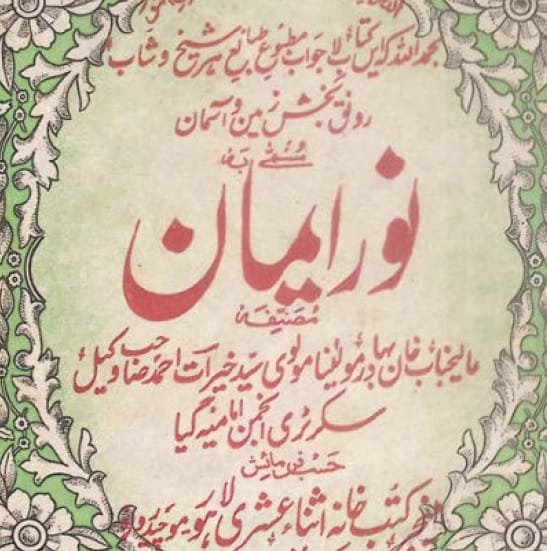 بحمد اللہ کہ ایں کتاب لاجواب مطبوع طبائع ہر شیخ و شاب
رونق بخش زمین و آسمان
مسمّٰی بہ
نور ایمان
مصنفہ
عالیجناب خان بہادر مولینا مولوی سید خیرات احمد صاحب وکیل
سکرٹری انجمن امامیہ گیا
حسب فرمائش
کتب خانہ اثنا عشری لاہور موچیدروازہ